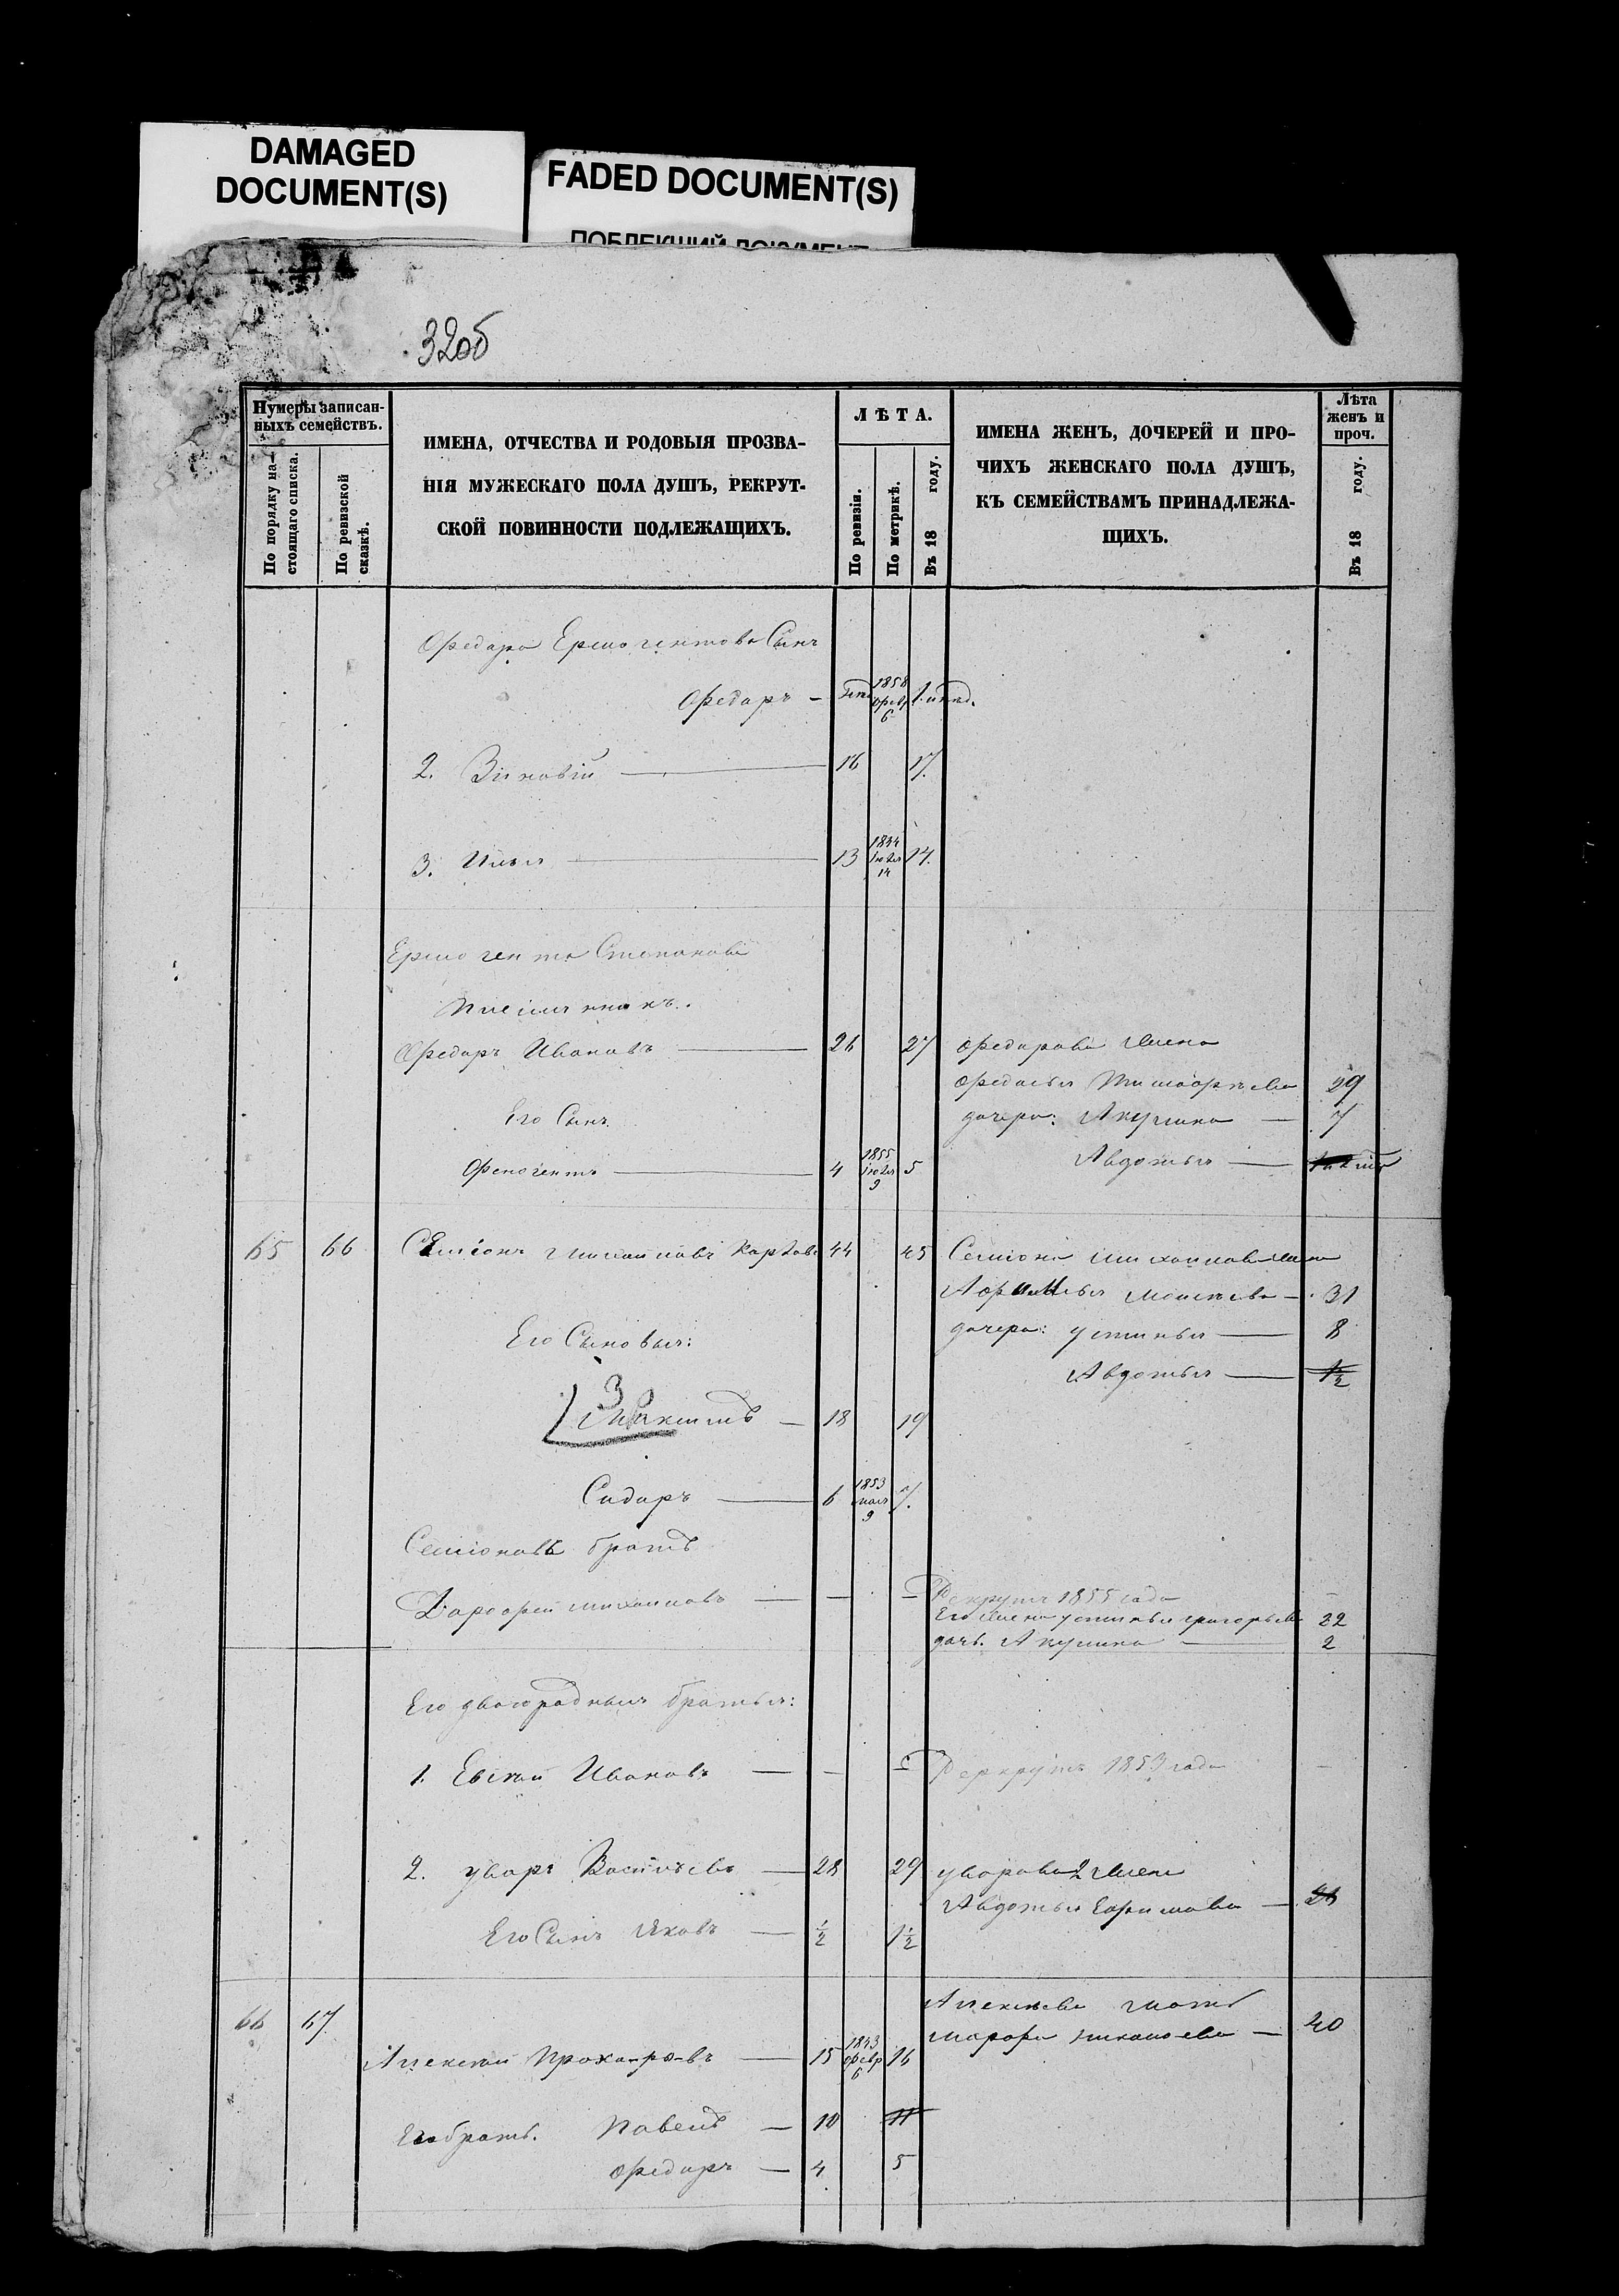 DAMAGED
DOCUMENT(S)
FADED DOCUMENT(S)
ПОБЛЕКШИЙ ДОКУМЕНТ
32об
Нумеры записан-
ныхъ семействъ.
По порядку на-
стоящаго списка.
По ревизской
сказкѣ.
ИМЕНА, ОТЧЕСТВА И РОДОВЫЯ ПРОЗВА-
НІЯ МУЖЕСКАГО ПОЛА ДУШЪ, РЕКРУТ-
СКОЙ ПОВИННОСТИ ПОДЛЕЖАЩИХЪ.
ЛѢТА.
По ревизіи.
По метрикѣ.
Въ 18 году.
ИМЕНА ЖЕНЪ, ДОЧЕРЕЙ И ПРО-
ЧИХЪ ЖЕНСКАГО ПОЛА ДУШЪ,
КЪ СЕМЕЙСТВАМЪ ПРИНАДЛЕЖА-
ЩИХЪ.
Лѣта
женъ и
проч.
Въ 18 году.
Федара Ермогентова Сынъ
Федаръ — 1858 февр 6
2. Зиновій — 16 17
3. Илья — 13 1844 Іюля 14 14
Ермогента Степанова
племянникъ.
Федаръ Ивановъ — 26 27 Федарова жена
Федосья Тимофѣева 29
Его Сынъ дочери: Акулина — 7
Фекогентъ — 4 1855 Іюля 9 5 Авдотья —
65 66 Семіонъ Михаиловъ 44 45 Семіона Михаилова жена
Афимья Моисѣева — 31
Его Сыновья: дочери: Устинья — 8
Авдотья — 1½
3
Никита — 18 19
Сидаръ — 6 1853 мая 9 7
Семіоновъ братъ
Дарофей Михаиловъ — — — Рекрутъ 1855 года —
Его жена Устинья Григорьева 32
дочь. Акулина — 2
Его двоюродныя братья:
1. Евсѣй Ивановъ — — — Рекрутъ 1853 года —
2. Уваръ Васильевъ — 28 29 Уварова 2 жена
Авдотья Ефимова —
Его Сынъ Яковъ — ½ 1½
66 67 Алексѣева мать
Марфа — 40
Алексѣй Прохоровъ — 15 1843 февр 6 16
Его братъ. Павелъ — 10 11
Федаръ — 4 5